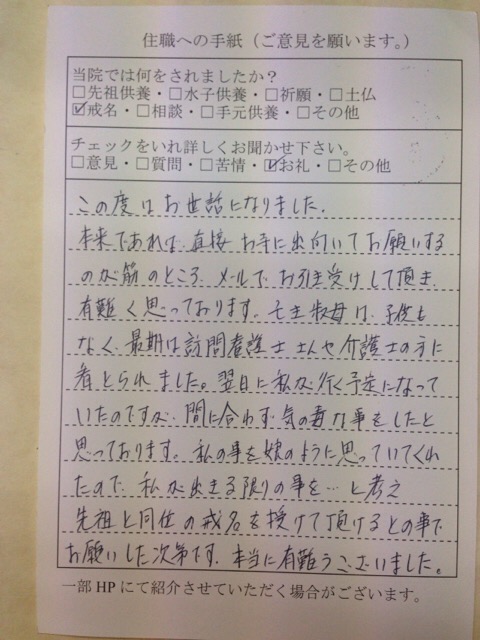 住職への手紙（ご意見を願います。）
当院では何をされましたか？
□先祖供養・□水子供養・□祈願・□土仏
☑戒名・□相談・□手元供養・□その他
チェックをいれ詳しくお聞かせ下さい。
□意見・□質問・□苦情・☑お礼・□その他
この度はお世話になりました。
本来であれば、直接お寺に出向いてお願いする
のが筋のところ、メールでお引き受けして頂き、
有難く思っております。
叔母は、子供も
なく、最期は訪問看護士さんや介護士の方に
看とられました。翌日に私が行く予定になって
いたのですが、間に合わず気の毒な事をしたと
思っております。私の事を娘のように思っていてくれ
たので、私が出来る限りの事を…と考え
先祖と同位の戒名を授けて頂けるとの事で
お願いした次第です。本当に有難うございました。
一部HPにて紹介させていただく場合がございます。